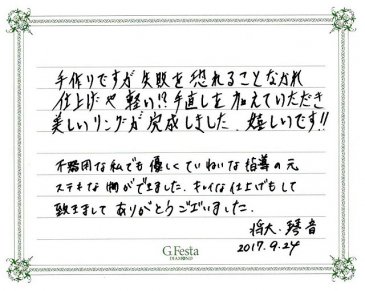 手作りですが失敗を恐れることなかれ
仕上げや軽い!?手直しを加えていただき
美しいリングが完成しました、嬉しいです!!
不器用な私でも優しくていねいな指導の元
ステキな物ができました。キレイな仕上げもして
致きまして ありがとうございました。
将大・琴音
2017.9.24
G.Festa
DIAMOND